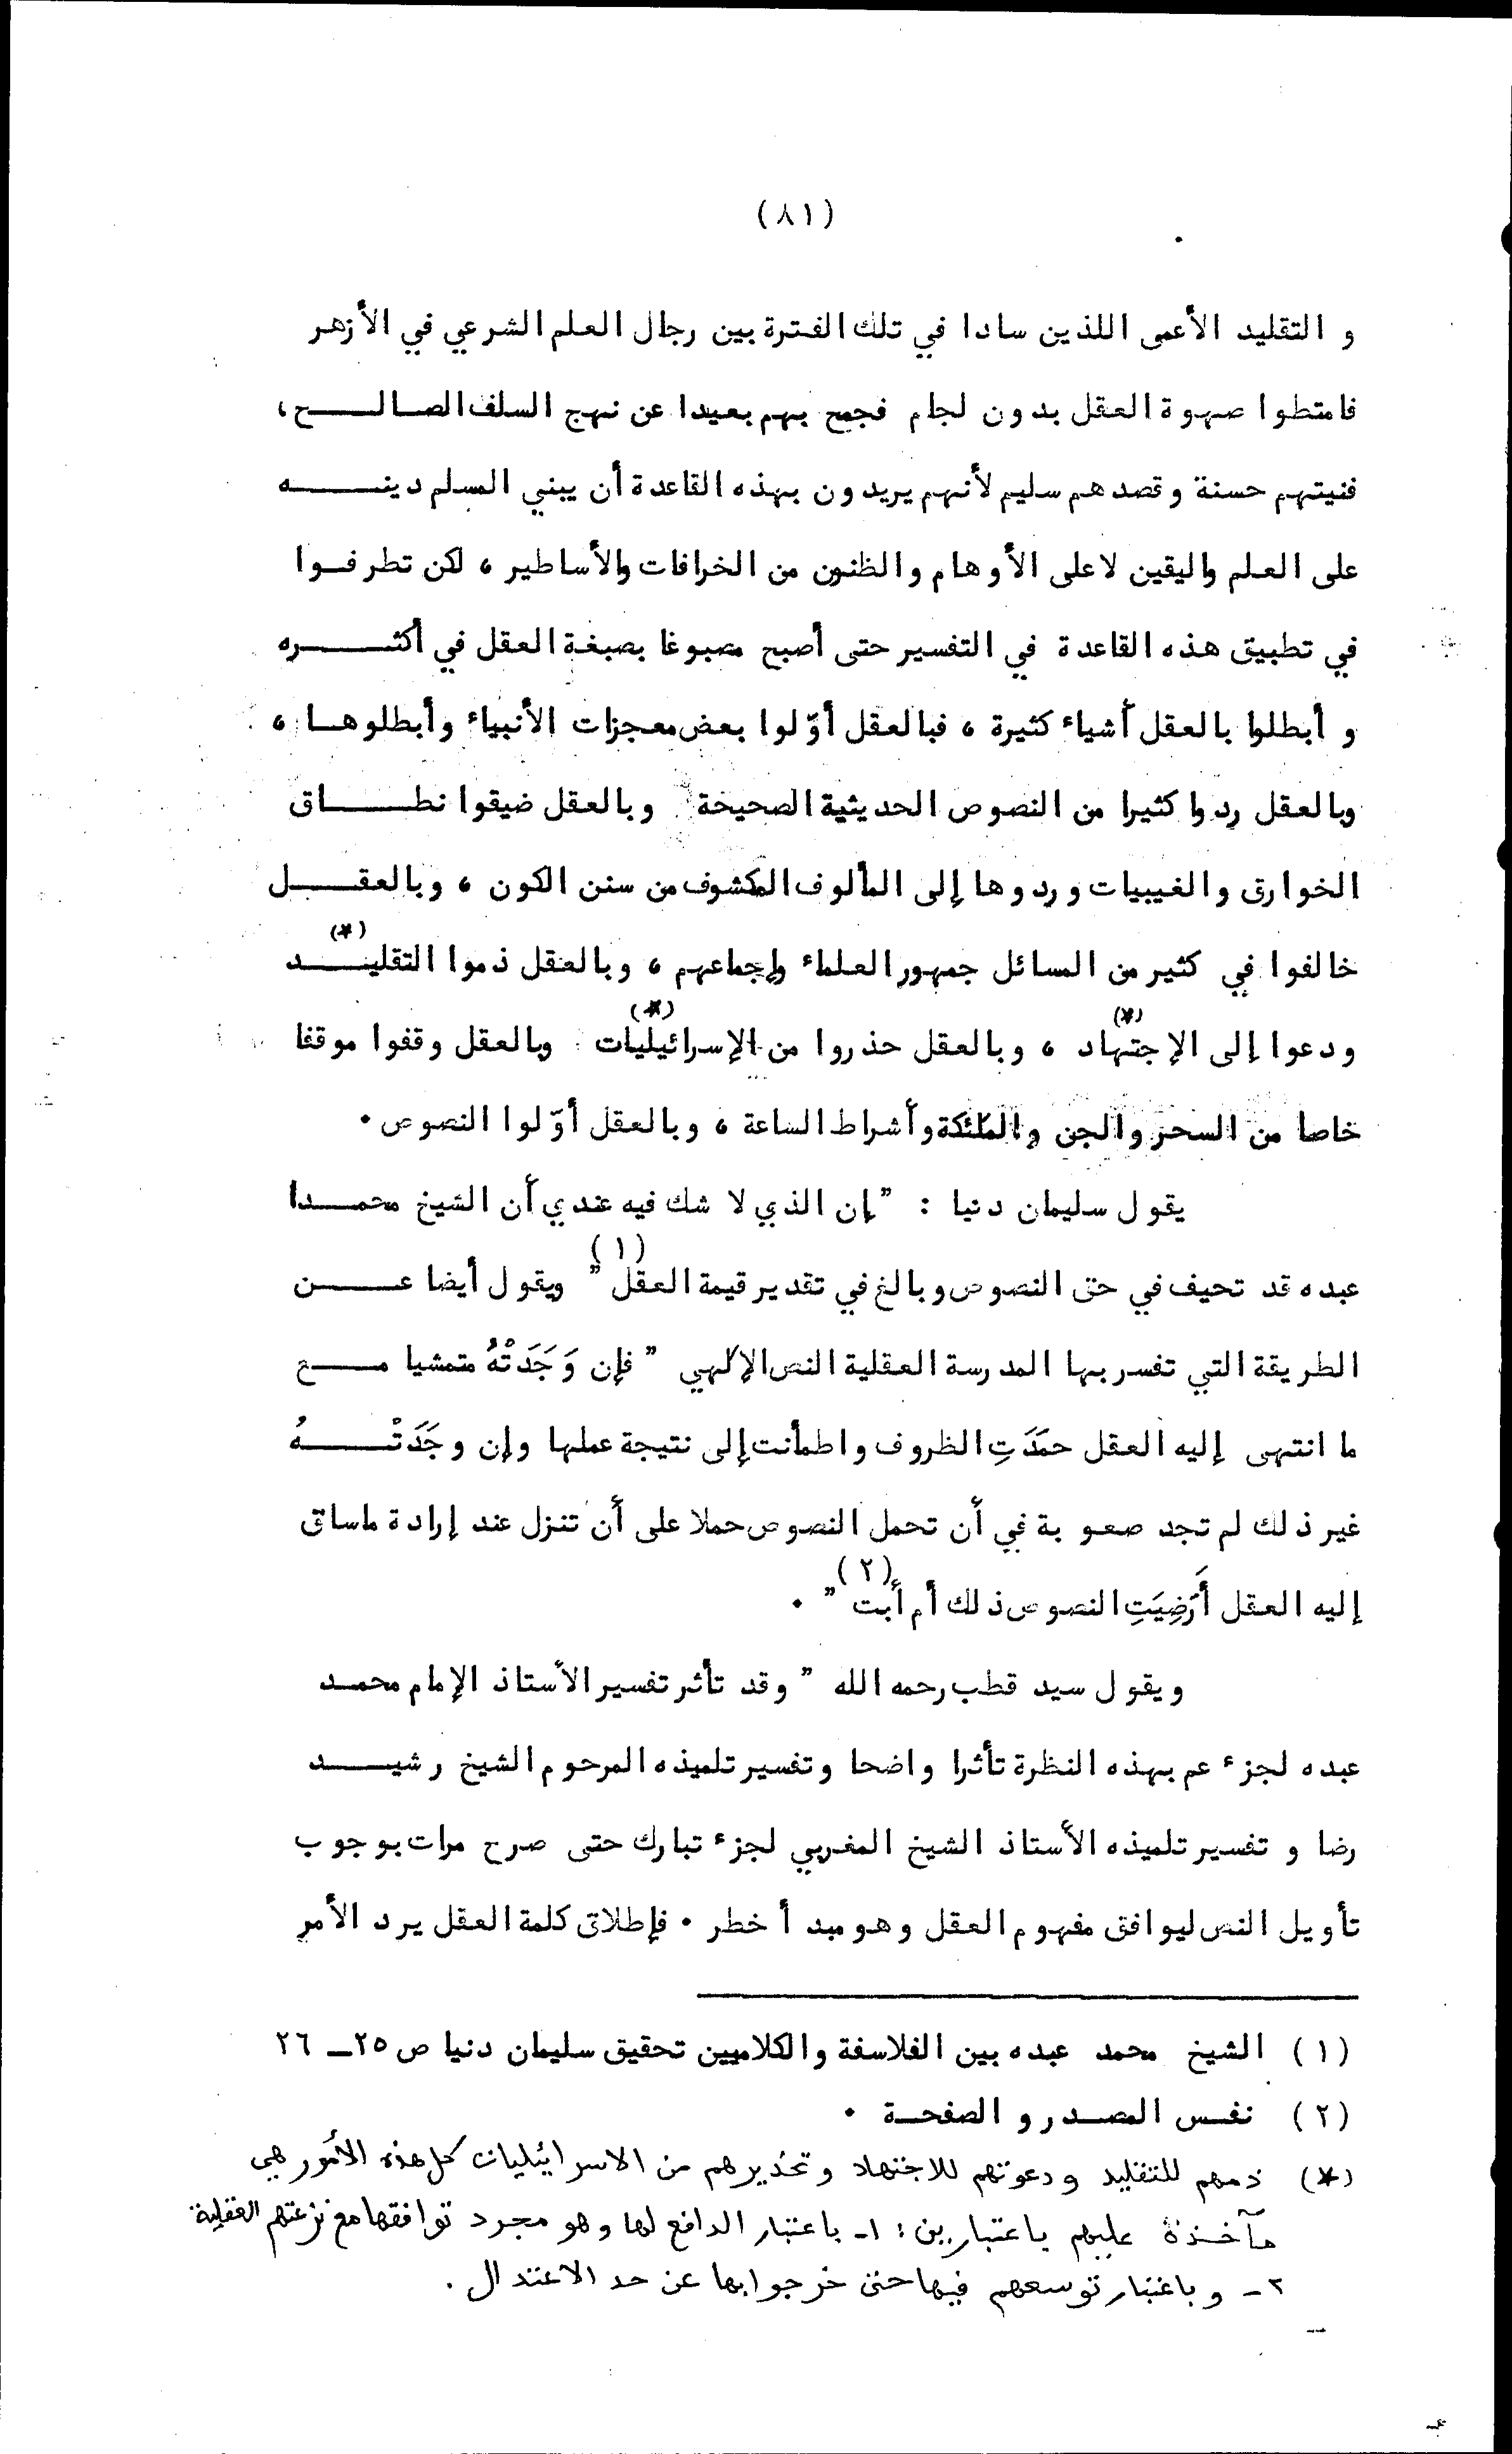 (٨١)
و التقليد الأعمى اللذين سادا في تلك الفترة بين رجال العلم الشرعي في الأزهر
فامتطوا صهوة العقل بدون لجام فجمح بهم بعيدا عن نهج السلف الصالح،
فنيتهم حسنة وقصدهم سليم لأنهم يريدون بهذه القاعدة أن يبني المسلم دينه
على العلم واليقين لا على الأوهام والظنون من الخرافات والأساطير ، لكن تطرفوا
في تطبيق هذه القاعدة في التفسير حتى أصبح مصبوغا بصبغة العقل في أكثره
و أبطلوا بالعقل أشياء كثيرة ، فبالعقل أوّلوا بعض معجزات الأنبياء وأبطلوها ،
وبالعقل ردوا كثيرا من النصوص الحديثية الصحيحة وبالعقل ضيقوا نطاق
الخوارق والغيبيات وردوها إلى المألوف المكشوف من سنن الكون ، وبالعقل
خالفوا في كثير من المسائل جمهور العلماء وإجماعهم ، وبالعقل ذموا التقليد (*)
ودعوا إلى الإجتهاد (*) ، وبالعقل حذروا من الإسرائيليات (*) وبالعقل وقفوا موقفا
خاصا من السحر والجن والملئكة وأشراط الساعة ، وبالعقل أوّلوا النصوص .
يقول سليمان دنيا : " إن الذي لا شك فيه عندي أن الشيخ محمدا
عبده قد تحيف في حق النصوص وبالغ في تقدير قيمة العقل " (١) ويقول أيضا عن
الطريقة التي تفسر بها المدرسة العقلية النص الإلهي " فإن وَجَدَتْهُ متمشيا مع
ما انتهى إليه العقل حمَدَتِ الظروف واطمأنت إلى نتيجة عملها وإن وجَدَتْهُ
غير ذلك لم تجد صعوبة في أن تحمل النصوص حملا على أن تنزل عند إرادة ماساق
إليه العقل أَرَضِيَتِ النصوص ذلك أم أبت " (٢) .
ويقول سيد قطب رحمه الله " وقد تأثر تفسير الأستاذ الإمام محمد
عبده لجزء عم بهذه النظرة تأثرا واضحا وتفسير تلميذه المرحوم الشيخ رشيد
رضا و تفسير تلميذه الأستاذ الشيخ المغربي لجزء تبارك حتى صرح مرات بوجوب
تأويل النص ليوافق مفهوم العقل وهو مبدأ خطر . فإطلاق كلمة العقل يرد الأمر
(١) الشيخ محمد عبده بين الفلاسفة والكلاميين تحقيق سليمان دنيا ص ٢٥ــ ٢٦
(٢) نفس المصدر و الصفحة .
(*) ذمهم للتقليد ودعوتهم للاجتهاد وتحذيرهم من الاسرائيليات كل هذه الأمور هي
مآخذة عليهم باعتبارين : ١ـ باعتبار الدافع لها وهو مجرد توافقها مع نزعتهم العقلية
٢ـ وباعتبار توسعهم فيها حتى خرجوا بها عن حد الاعتدال .